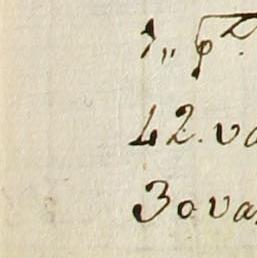 1„ pr.
42. va
30 va